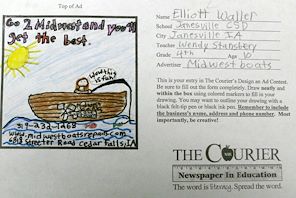 Top of Ad
Go 2 Midwest and you'll
get the best.
Wow this
is fun!
www.midwestboatsrepair.com
Street Road Cedar Falls, IA
Name Elliott Waller
School Janesville CSD
City Janesville IA
Teacher Wendy Stansbery
Grade 4th Age 10
Advertiser Midwest boats
This is your entry in The Courier's Design an Ad Contest.
Be sure to fill out the form completely. Draw neatly and
within the box using colored markers to fill in your
drawing. You may want to outline your drawing with a
black felt-tip pen or black ink pen. Remember to include
the business's name, address and phone number. Most
importantly, be creative!
THE COURIER
Newspaper In Education
The word is literacy. Spread the word.